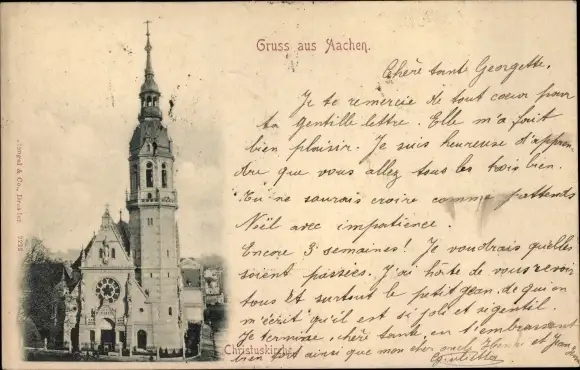 Gruss aus Aachen.
Chère tante Georgette,
Je te remercie de tout coeur pour
ta gentille lettre. Elle m'a fait
bien plaisir. Je suis heureuse d'appren
dre que vous allez tous les trois bien.
Tu ne saurais croire comme j'attends
Noël avec impatience.
Encore 3 semaines! Je voudrais qu'elles
soient passées. J'ai hâte de vous revoir
tous et surtout le petit Jean, de qui on
m'écrit qu'il est si joli et si gentil.
Je termine, chère tante, en t'embrassant
bien fort ainsi que mon cher oncle et Jean
Christuskirche
& Co., 1222